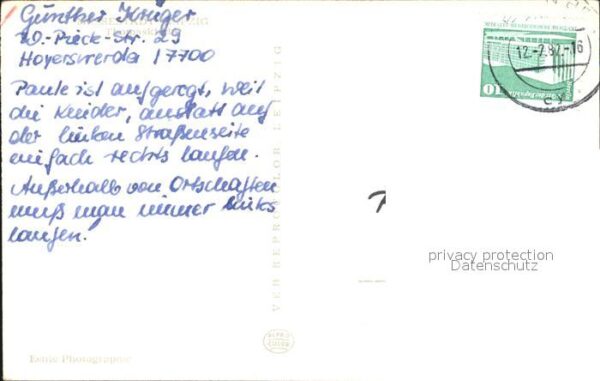 Günther Krüger
W.-Pieck-Str. 29
Hoyerswerda 17700
Paule ist aufgeregt, weil
die Kinder, anstatt auf
der linken Straßenseite
einfach rechts laufen.
Außerhalb von Ortschaften
muß man immer links
laufen!
12.-7.87.-16
10
VEB REPROCOLOR LEIPZIG
REPRO COLOR
Echte Photographie
privacy protection
Datenschutz